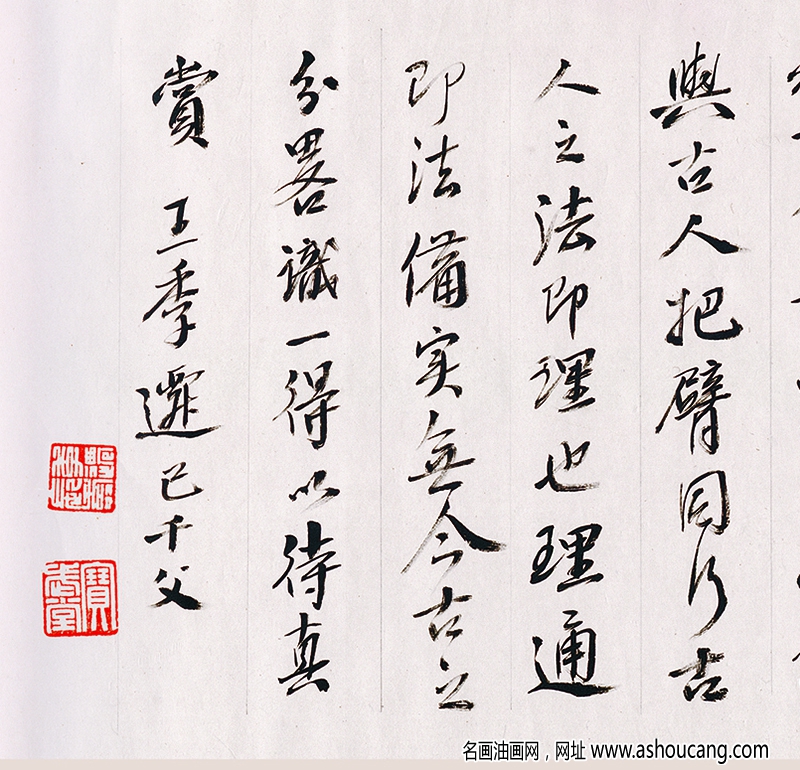 與古人把臂同行古
人之法即理也理通
即法備实無今古之
分畧識一得以待真
賞 王季遷己千父
名画油画网，网址 www.ashoucang.com